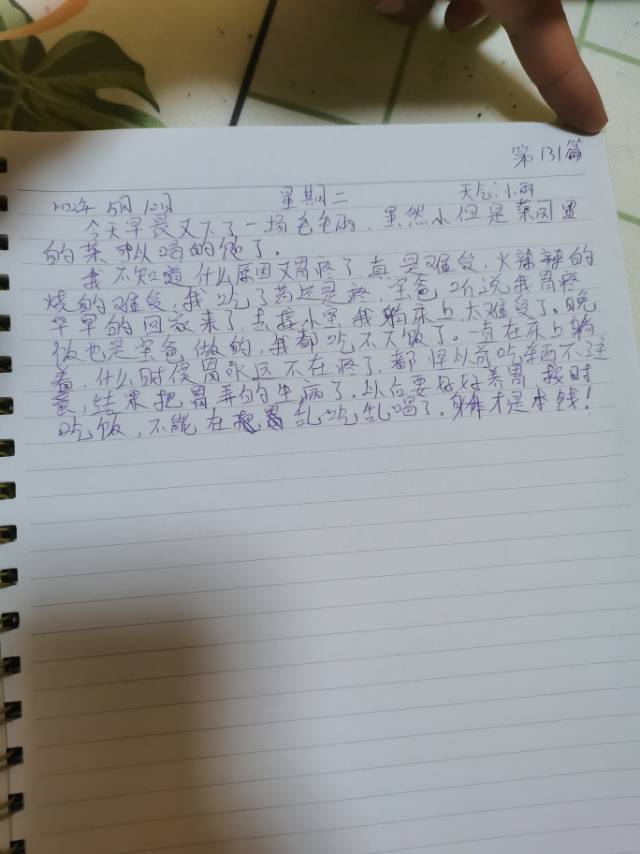 第131篇
2022年 5月10日 星期二 天气:小雨
今天早晨又下了一场毛毛雨,虽然小但是菜园里
的菜可以喝的饱了。
我不知道什么原因又胃疼了,真是难受,火辣辣的
烧的难受,我吃了药还是疼,宝爸听说我胃疼
早早的回家来了,去接小宝,我躺床上太难受了。晚
饭也是宝爸做的,我都吃不下饭了。一直在床上躺
着,什么时侯胃永远不在疼了,都怪以前吃东西不注
意,结果把胃弄的生病了,以后要好好养胃按时
吃饭,不能在乱吃乱喝了,身体才是本钱!